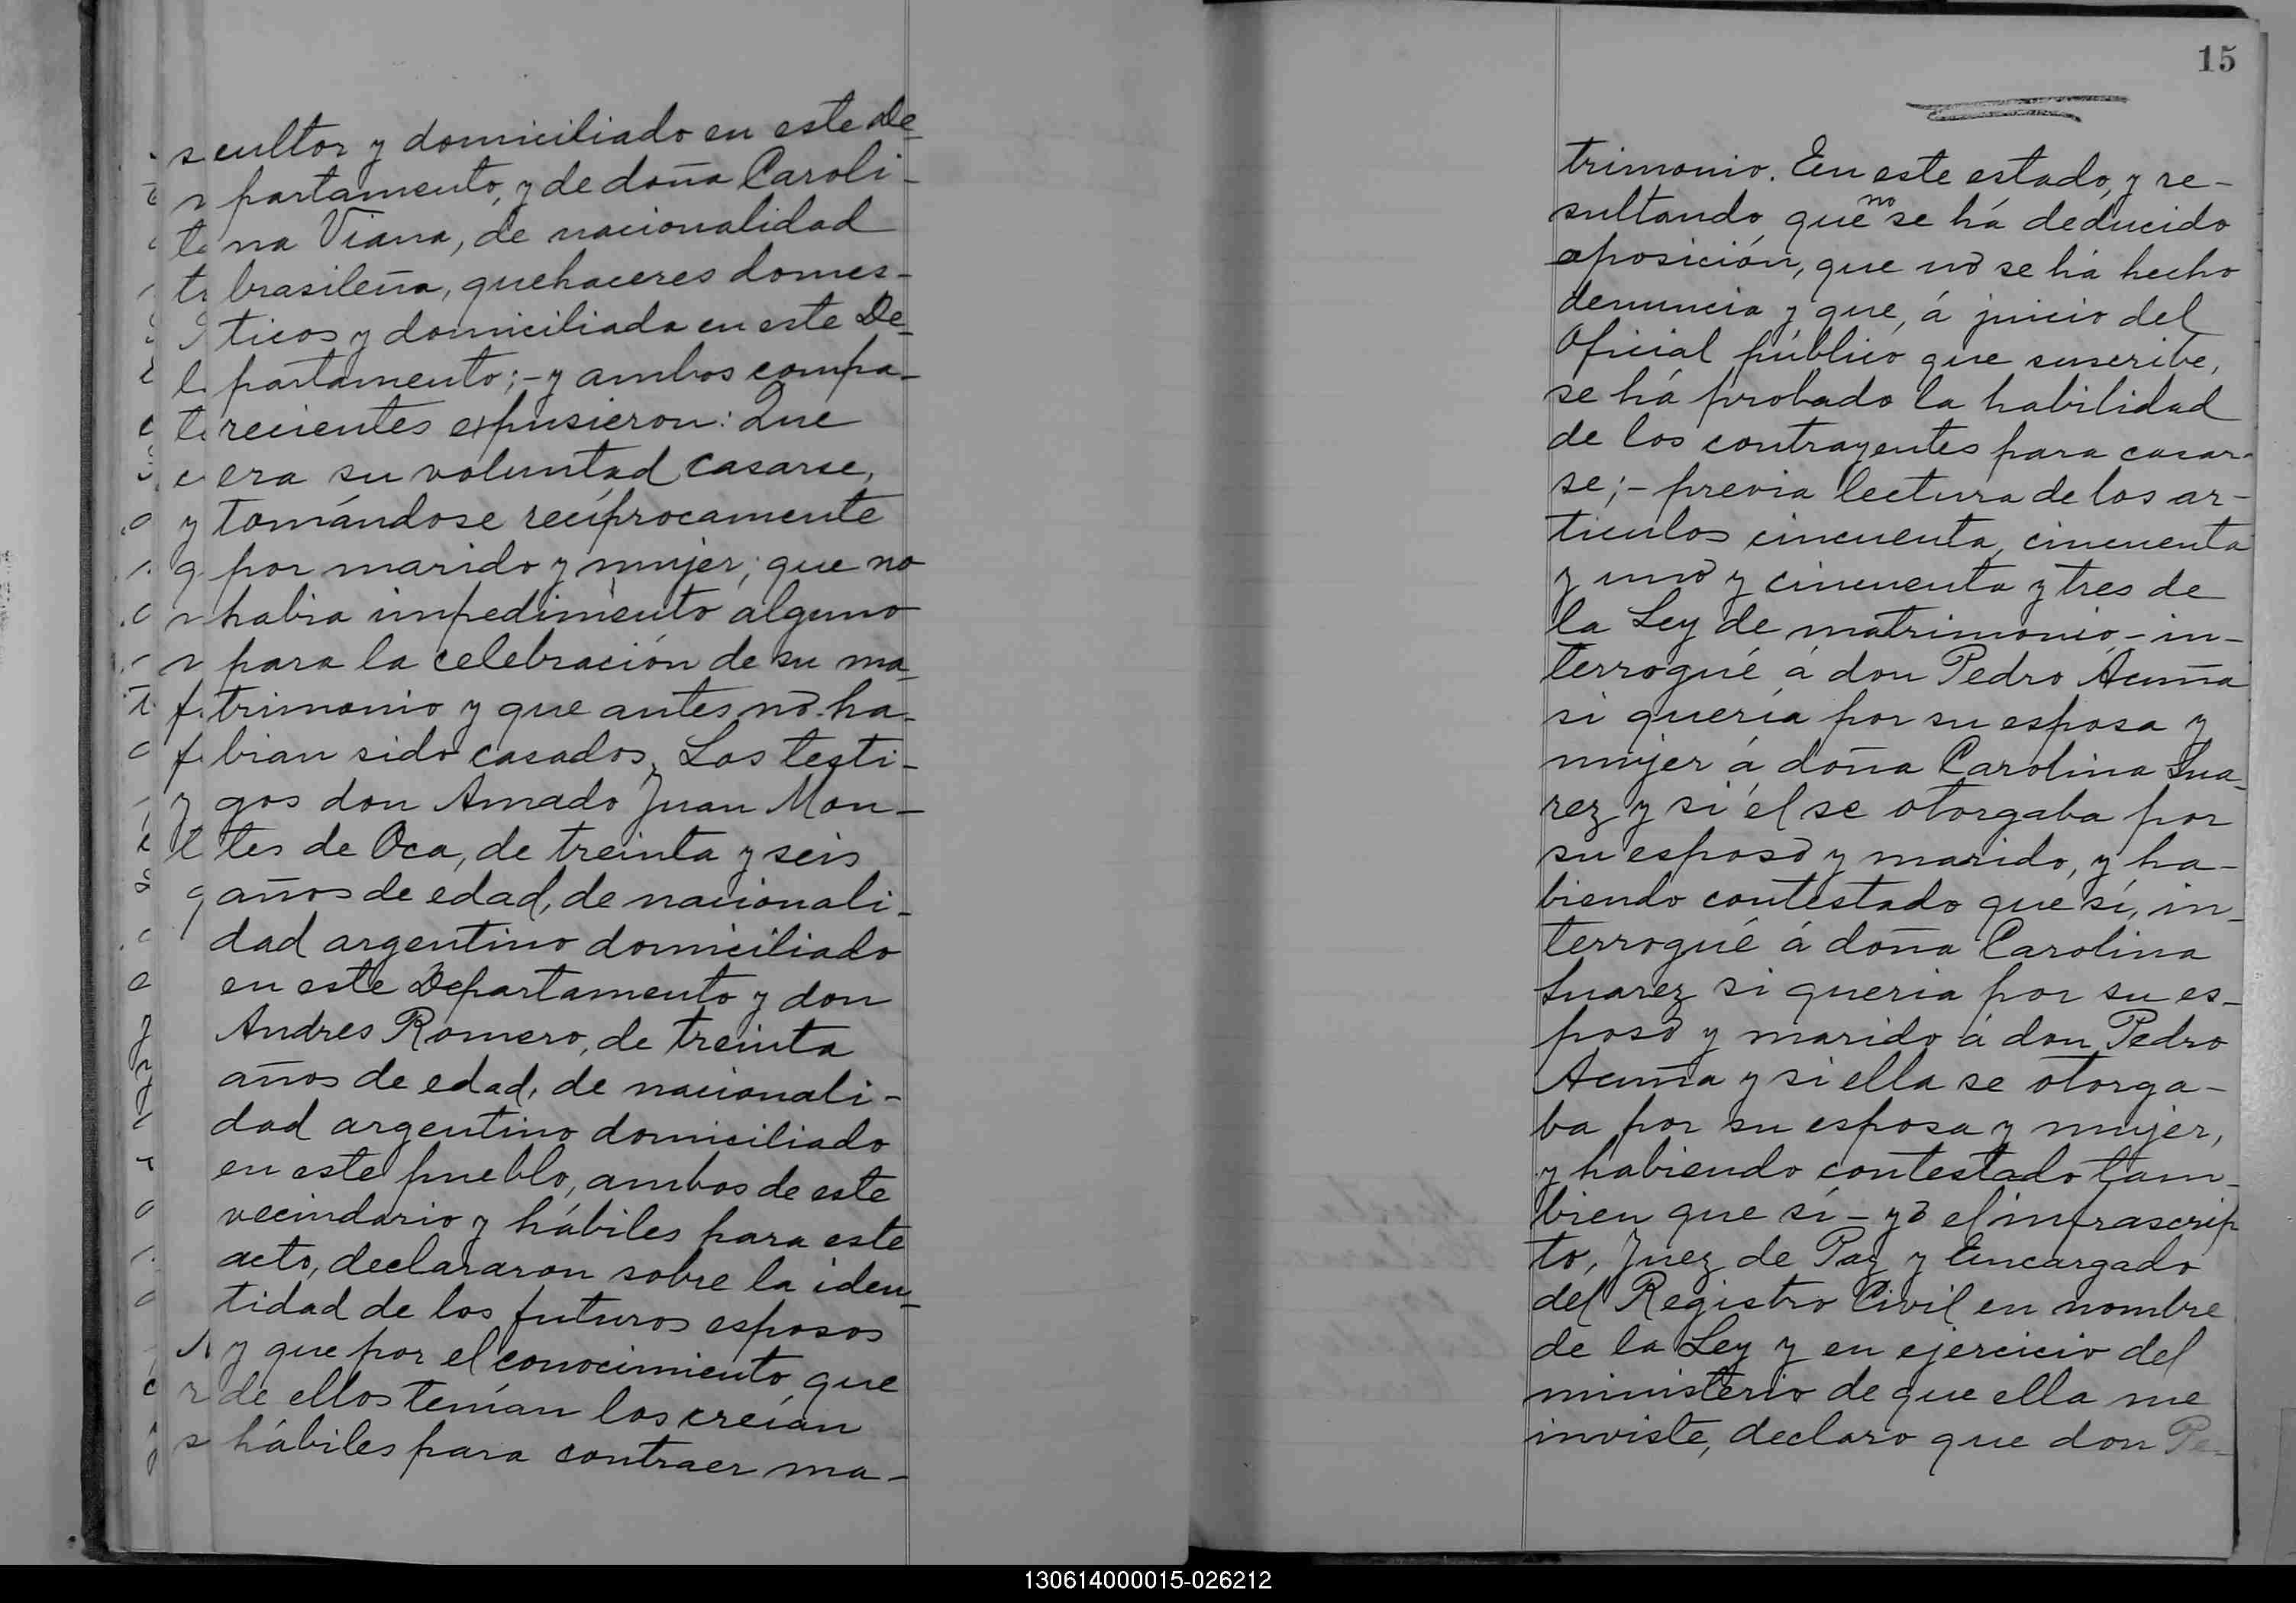 cultor y domiciliado en este De-
partamento, y de doña Caroli-
na Viana, de nacionalidad
brasileña, quehaceres domes-
ticos y domiciliada en este De-
partamento;- y ambos compa-
recientes expusieron: Que
era su voluntad casarse,
tomándose recíprocamente
por marido y mujer; que no
habia impedimento alguno
para la celebración de su ma-
trimonio y que antes no ha-
bian sido casados. Los testi-
gos don Amado Juan Mon-
tes de Oca, de treinta y seis
años de edad, de nacionali-
dad argentino domiciliado
en este Departamento y don
Andres Romero, de treinta
años de edad, de nacionali-
dad argentino domiciliado
en este pueblo, ambos de este
vecindario y hábiles para este
acto, declararon sobre la iden-
tidad de los futuros esposos
y que por el conocimiento que
de ellos tenían los creían
hábiles para contraer ma-
15
trimonio. En este estado, y re-
sultando que no se há deducido
oposición, que no se há hecho
denuncia y que, á juicio del
Oficial público que suscribe,
se há probado la habilidad
de los contrayentes para casar-
se;- previa lectura de los ar-
ticulos cincuenta, cincuenta
y uno y cincuenta y tres de
la Ley de matrimonio - in-
terrogué á don Pedro Acuña
si quería por su esposa y
mujer á doña Carolina Sua-
rez y si él se otorgaba por
su esposo y marido, y ha-
biendo contestado que sí, in-
terrogué á doña Carolina
Suarez si queria por su es-
poso y marido á don Pedro
Acuña y si ella se otorga-
ba por su esposa y mujer,
y habiendo contestado tam-
bien que sí - yo el infrascrip
to, Juez de Paz y Encargado
del Registro Civil en nombre
de la Ley y en ejercicio del
ministerio de que ella me
inviste, declaro que don Pe-
130614000015-026212